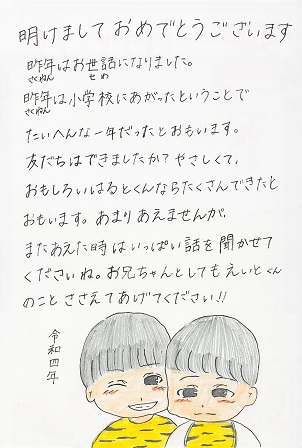 明けましておめでとうございます
昨年はお世話になりました。
さくねん せわ
昨年は小学校にあがったということで
さくねん
たいへんな一年だったとおもいます。
友だちはできましたか？やさしくて、
おもしろいはるとくんならたくさんできたと
おもいます。あまりあえませんが、
またあえた時はいっぱい話を聞かせて
くださいね。お兄ちゃんとしてもえいとくん
のことささえてあげてください!!
令和四年